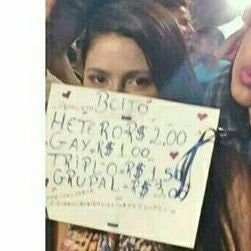 BEIJO
HETERO-R$ 2.00
GAY-R$ 1.00
TRIPLO-R$ 1.50
GRUPAL-R$ 3.00